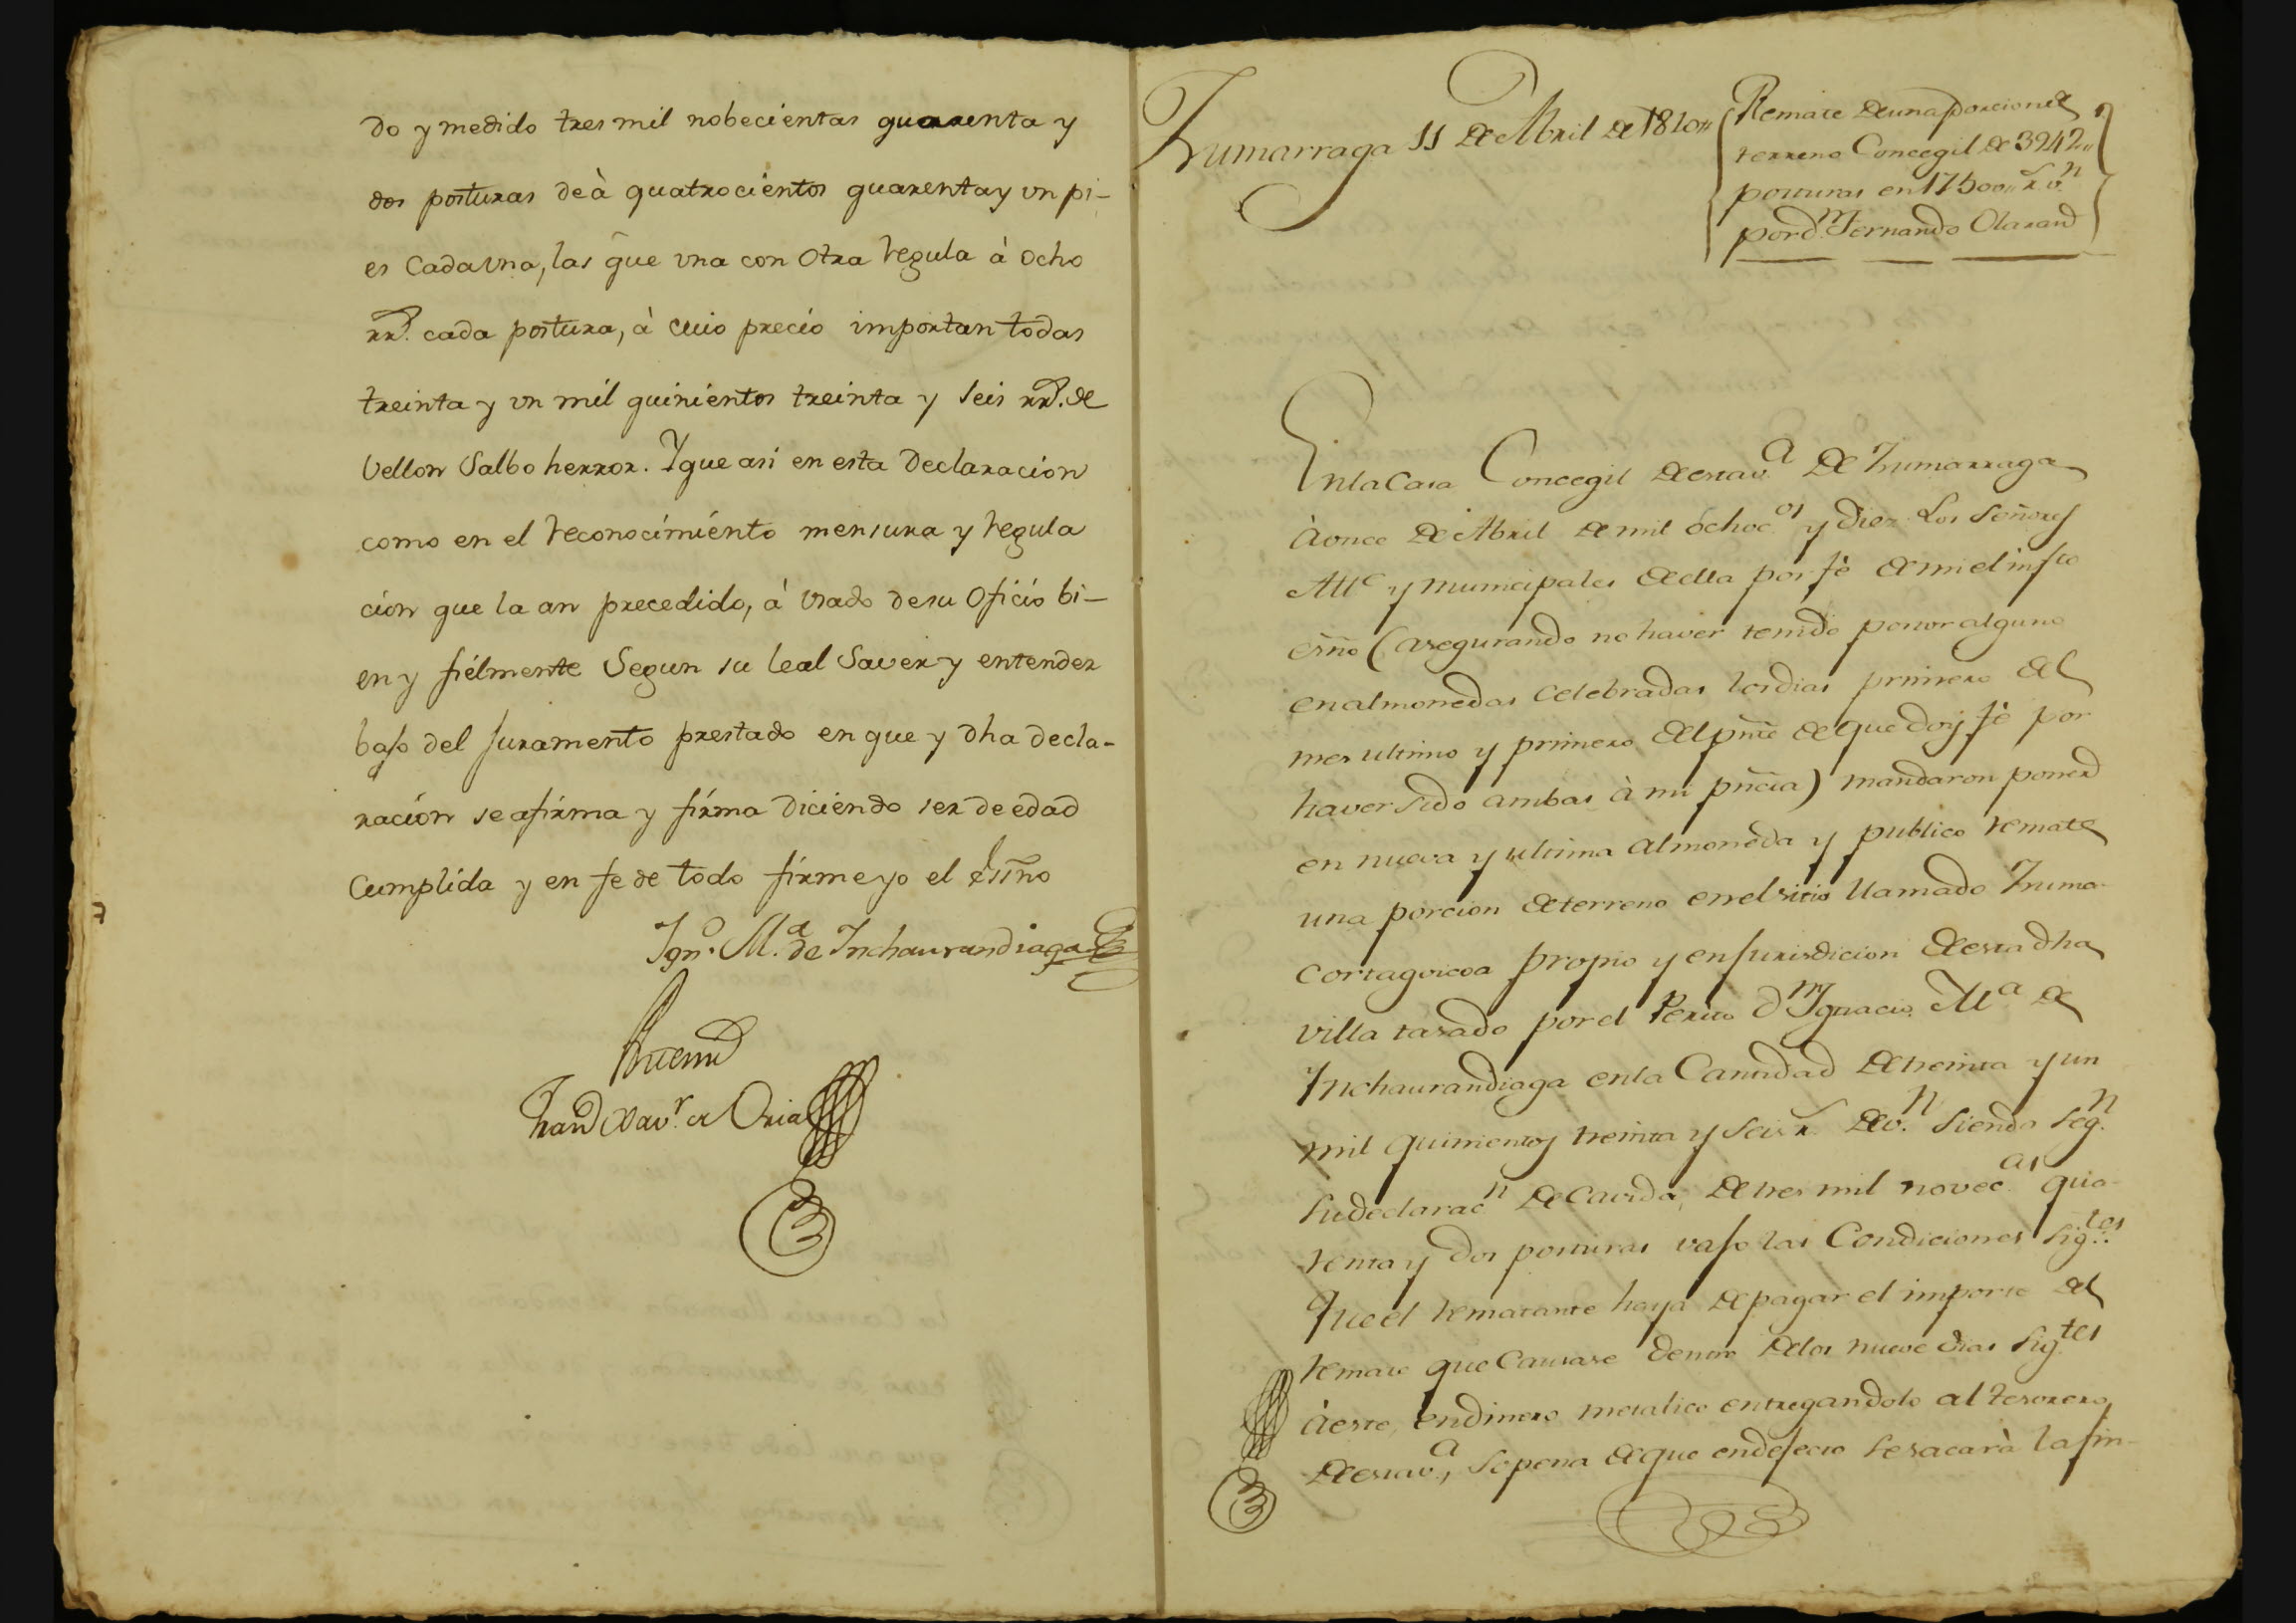 do y medido tres mil nobecientas quarenta y
dos posturas de à quatrocientos quarenta y vn pi-
es Cada vna, las que vna con Otra regula à Ocho
rr.s cada postura, à cuio precio importan todas
treinta y vn mil quinientos treinta y seis rr.s de
Vellon Salbo herror. Y que asi en esta Declaracion
como en el reconocimiento mensura y regula
cion que la an precedido, à vsado de su Oficio bi-
en y fielmente Segun su leal Saver y entender
bajo del Juramento prestado en que y dha decla-
racion se afirma y firma diciendo ser de edad
Cumplida y en fe de todo firme yo el Essno
Ign.o M.a de Inchaurandiaga
Antemi
Xav.r de Oria
Zumarraga 11 de Abril de 1810
Remate de una porcion de
terreno Concegil de 3942
posturas en 17500 r.s v.n
por d.n Fernando Olaran
En la Casa Concegil de esta v.a de Zumarraga
à once de Abril de mil òchoc.os y diez: Los Señores
Alle y municipales de ella por fè de mi el infto
esño (asegurando no haver tenido postor alguno
en almonedas celebradas los dias primero del
mes ultimo y primero del pñte de que doy fè por
haver sido ambas à mi pñcia) mandaron poner
en nueva y ultima almoneda y publico remate
una porcion de terreno en el sitio llamado Zuma-
cortagoicoa propio y en Jurisdicion de esta dha
villa tasado por el Perito d.n Ignacio M.a de
Inchaurandiaga en la Cantidad de treinta y un
mil quinientos treinta y seis r.s de v.n siendo seg.n
su declarac.n de Cavida, de tres mil novec.as qua-
renta y dos posturas vajo las Condiciones sig.tes
Que el rematante haya de pagar el importe del
remate que Causare dentro de los nueve dias sig.tes
à este, en dinero metalico entregandolo al tesorero
de esta v.a, so pena de que en defecto se sacarà la fin-